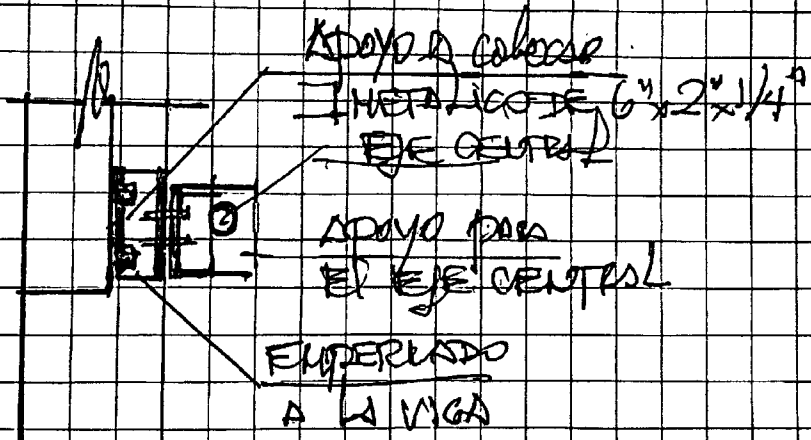 APOYO A colocar
I METALICO DE 6"x2"x1/4"
EJE CENTRAL
2
APOYO para
El EJE CENTRAL
EMPERNADO
A LA VIGA